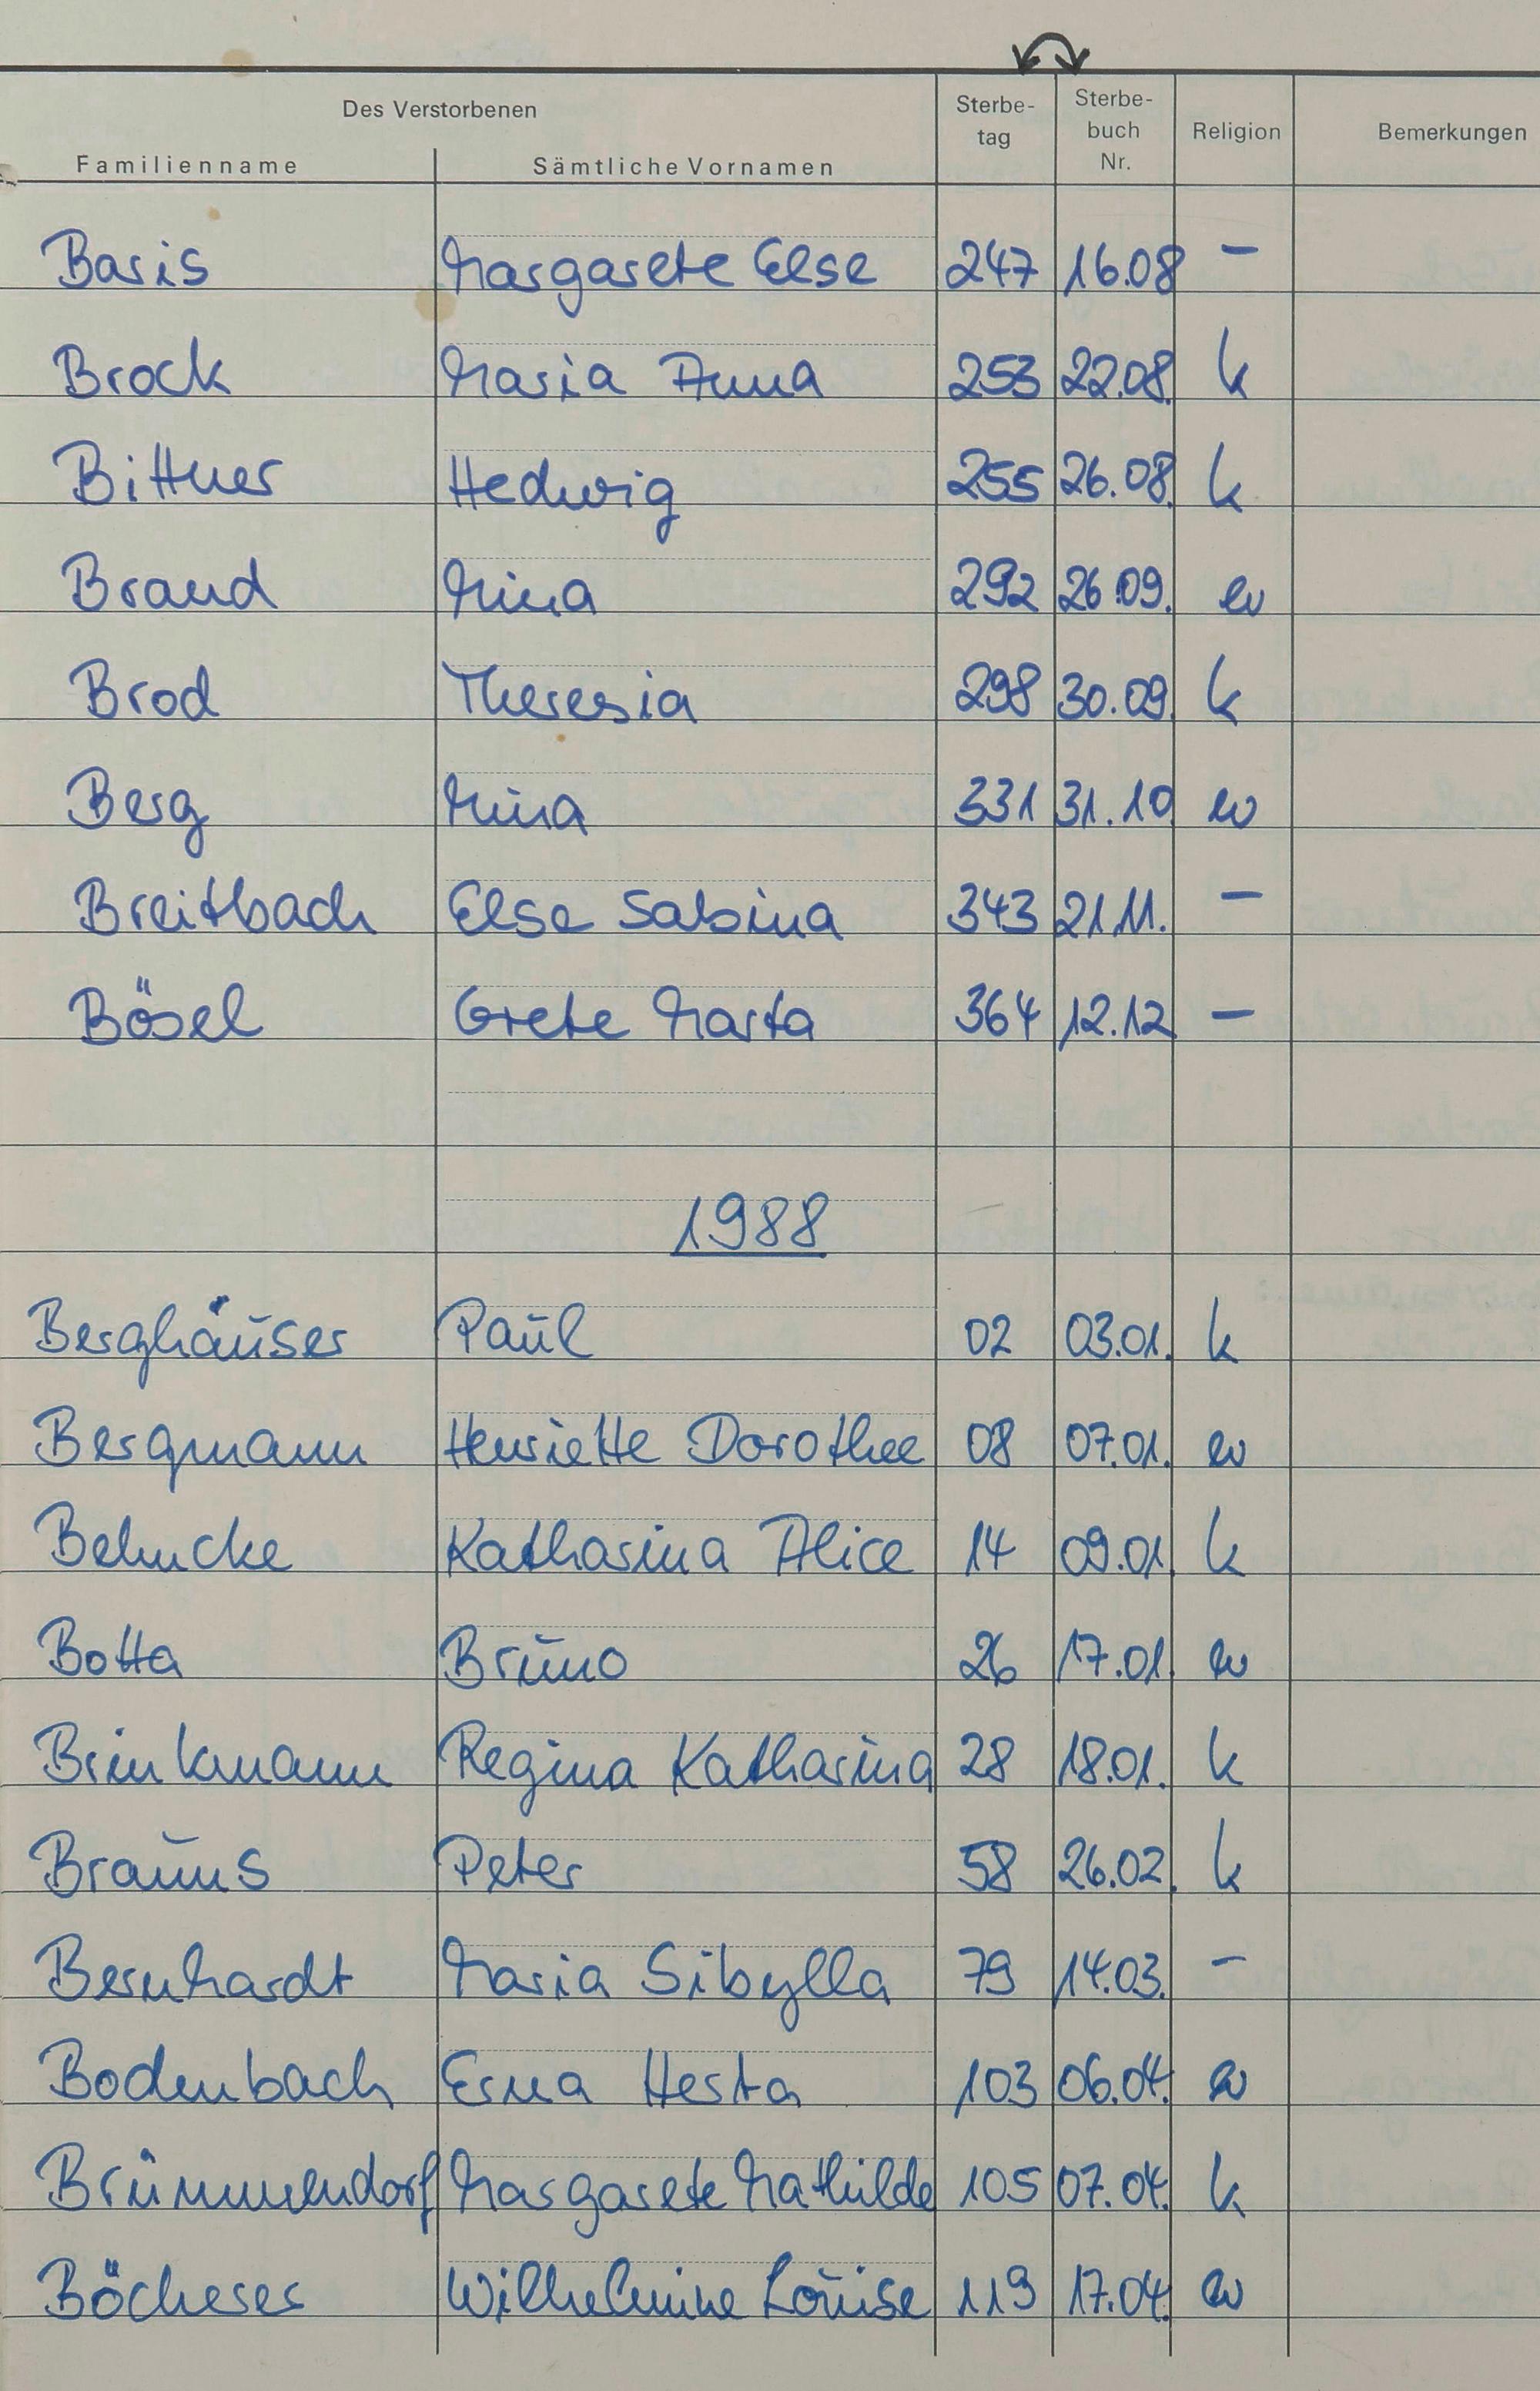 Des Verstorbenen
Familienname Sämtliche Vornamen Sterbe-tag Sterbe-buch Nr. Religion Bemerkungen
Baris Margarete Else 247 16.08 –
Brock Maria Anna 253 22.08. k
Bittner Hedwig 255 26.08. k
Brand Mina 292 26.09. ev
Brod Theresia 298 30.09. k
Berg Mina 331 31.10 ev
Breitbach Else Sabina 343 21.11. –
Bösel Grete Marta 364 12.12 –
1988
Berghäuser Paul 02 03.01. k
Bergmann Henriette Dorothee 08 07.01. ev
Behncke Katharina Alice 14 09.01. k
Botta Bruno 26 17.01. ev
Brinkmann Regina Katharina 28 18.01. k
Brauns Peter 58 26.02. k
Bernhardt Maria Sibylla 79 14.03. –
Bodenbach Erna Herta 103 06.04. ev
Brümmendorf Margarete Mathilde 105 07.04. k
Böcherer Wilhelmine Louise 119 17.04. ev